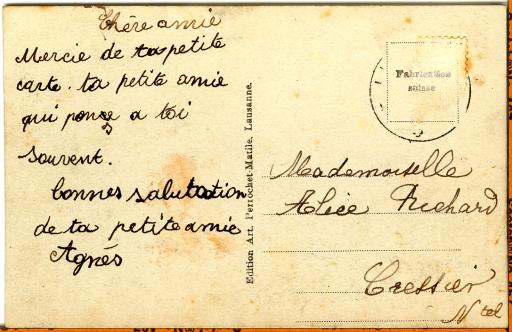 Chère amie
Mercie de ta petite
carte. ta petite amie
qui ponse a toi
souvent.
bonnes salutation
de ta petite amie
Agnès
Edition Art. Perrochet-Matile, Lausanne.
Fabrication
suisse
Mademoiselle
Alice Richard
Cressier
Ntel